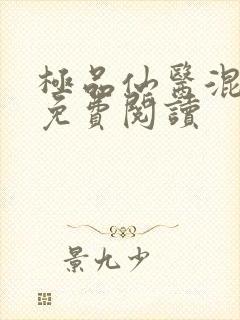 極品仙醫混
免費閱讀
景九少